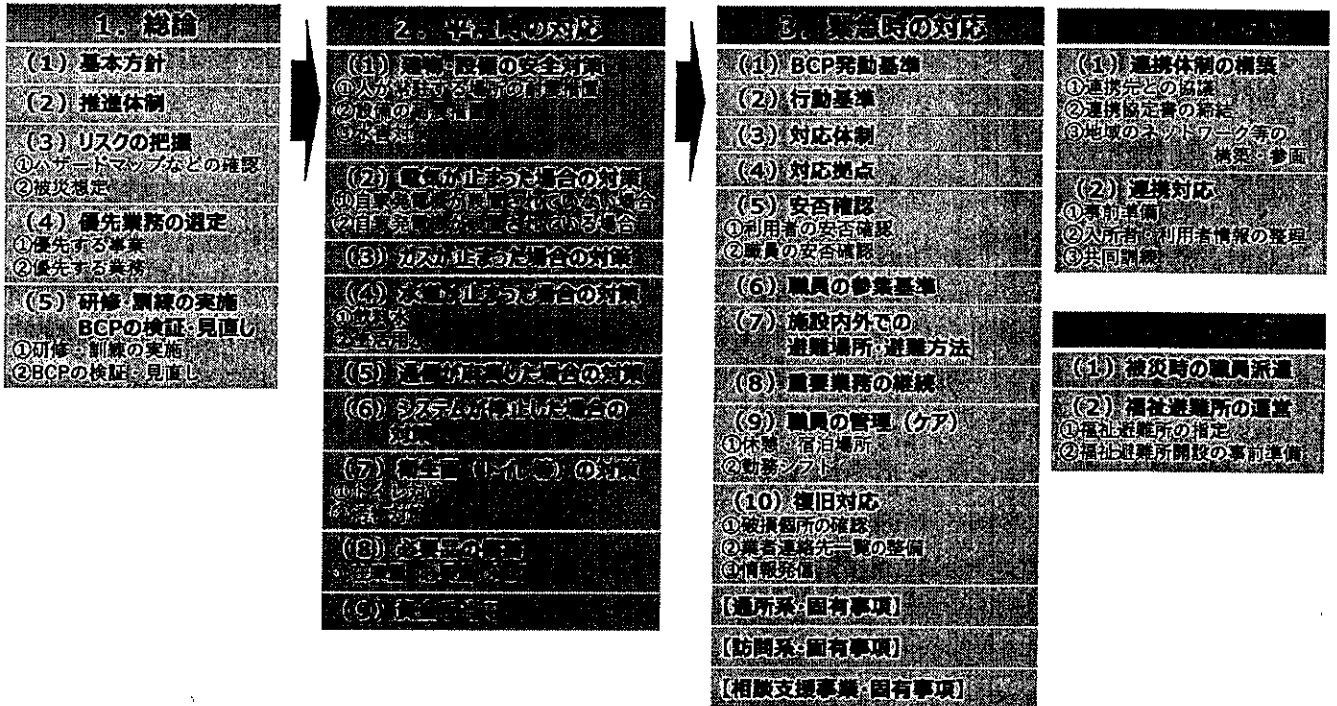 1. 総論
(1) 基本方針
(2) 推進体制
(3) リスクの把握
①ハザードマップなどの確認
②被災想定
(4) 優先業務の選定
①優先する事業
②優先する業務
(5) 研修・訓練の実施
BCPの検証・見直し
①研修・訓練の実施
②BCPの検証・見直し
2. 平常時の対応
(1) 建物・設備の安全対策
①人が常駐する場所の耐震措置
②設備の耐震措置
③水害対
(2) 電気が止まった場合の対策
①自家発電機が設置されていない場合
②自家発電機が設置されている場合
(3) ガスが止まった場合の対策
(4) 水道が止まった場合の対策
①飲料水
②生活用
(5) 通信が麻痺した場合の対策
(6) システムが停止した場合の
対策
(7) 衛生面（トイレ等）の対策
①トイレ対
(8) 必要品の備蓄
(9)
3. 緊急時の対応
(1) BCP発動基準
(2) 行動基準
(3) 対応体制
(4) 対応拠点
(5) 安否確認
①利用者の安否確認
②職員の安否確認
(6) 職員の参集基準
(7) 施設内外での
避難場所・避難方法
(8) 重要業務の継続
(9) 職員の管理（ケア）
①休憩・宿泊場所
②勤務シフト
(10) 復旧対応
①破損個所の確認
②業者連絡先一覧の整備
③情報発信
【通所系・固有事項】
【訪問系・固有事項】
【相談支援事業・固有事項】
(1) 連携体制の構築
①連携先との協議
②連携協定書の締結
③地域のネットワーク等の
構築・参画
(2) 連携対応
①事前準備
②入所者・利用者情報の整理
③共同訓練
(1) 被災時の職員派遣
(2) 福祉避難所の運営
①福祉避難所の指定
②福祉避難所開設の事前準備